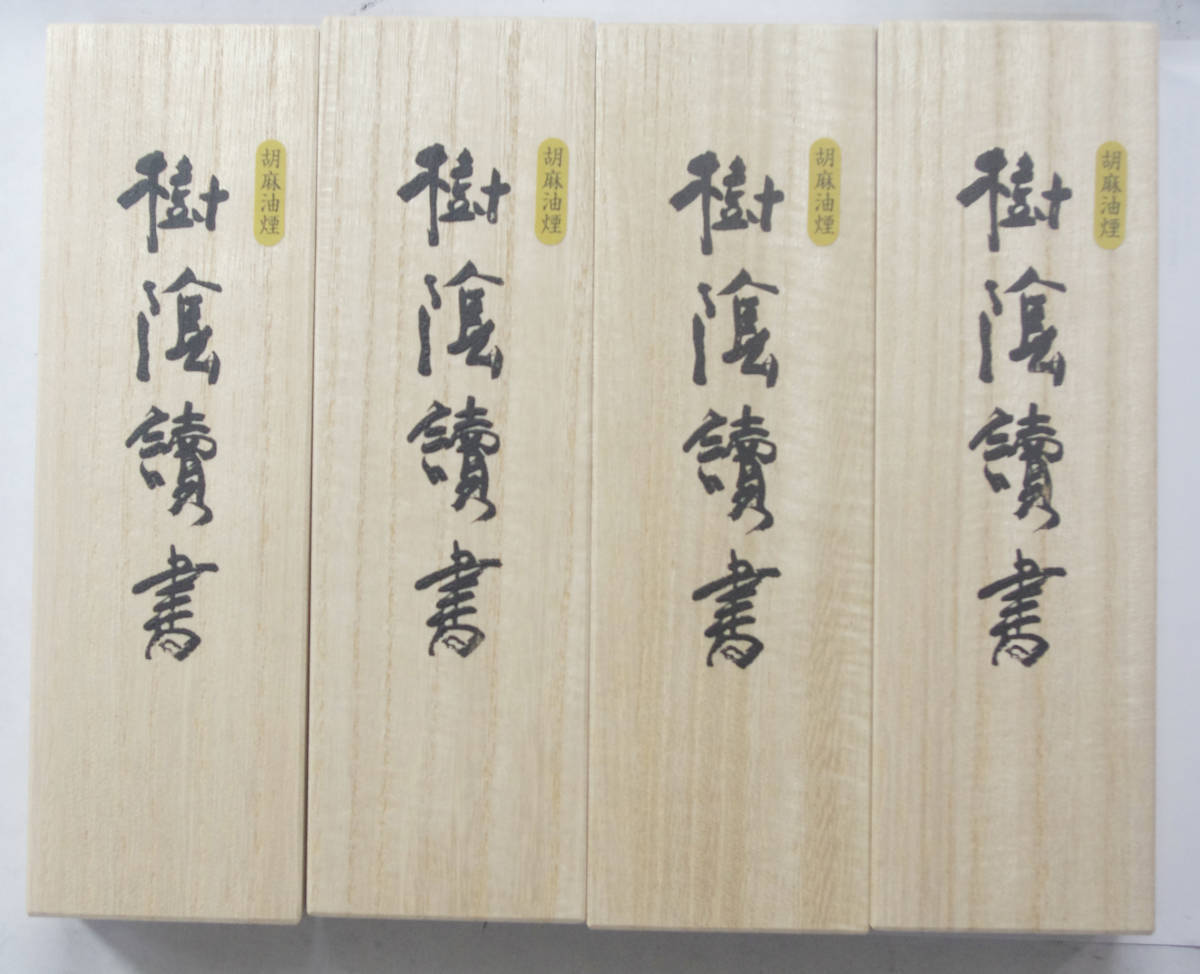 胡麻油煙
樹陰讀書
胡麻油煙
樹陰讀書
胡麻油煙
樹陰讀書
胡麻油煙
樹陰讀書